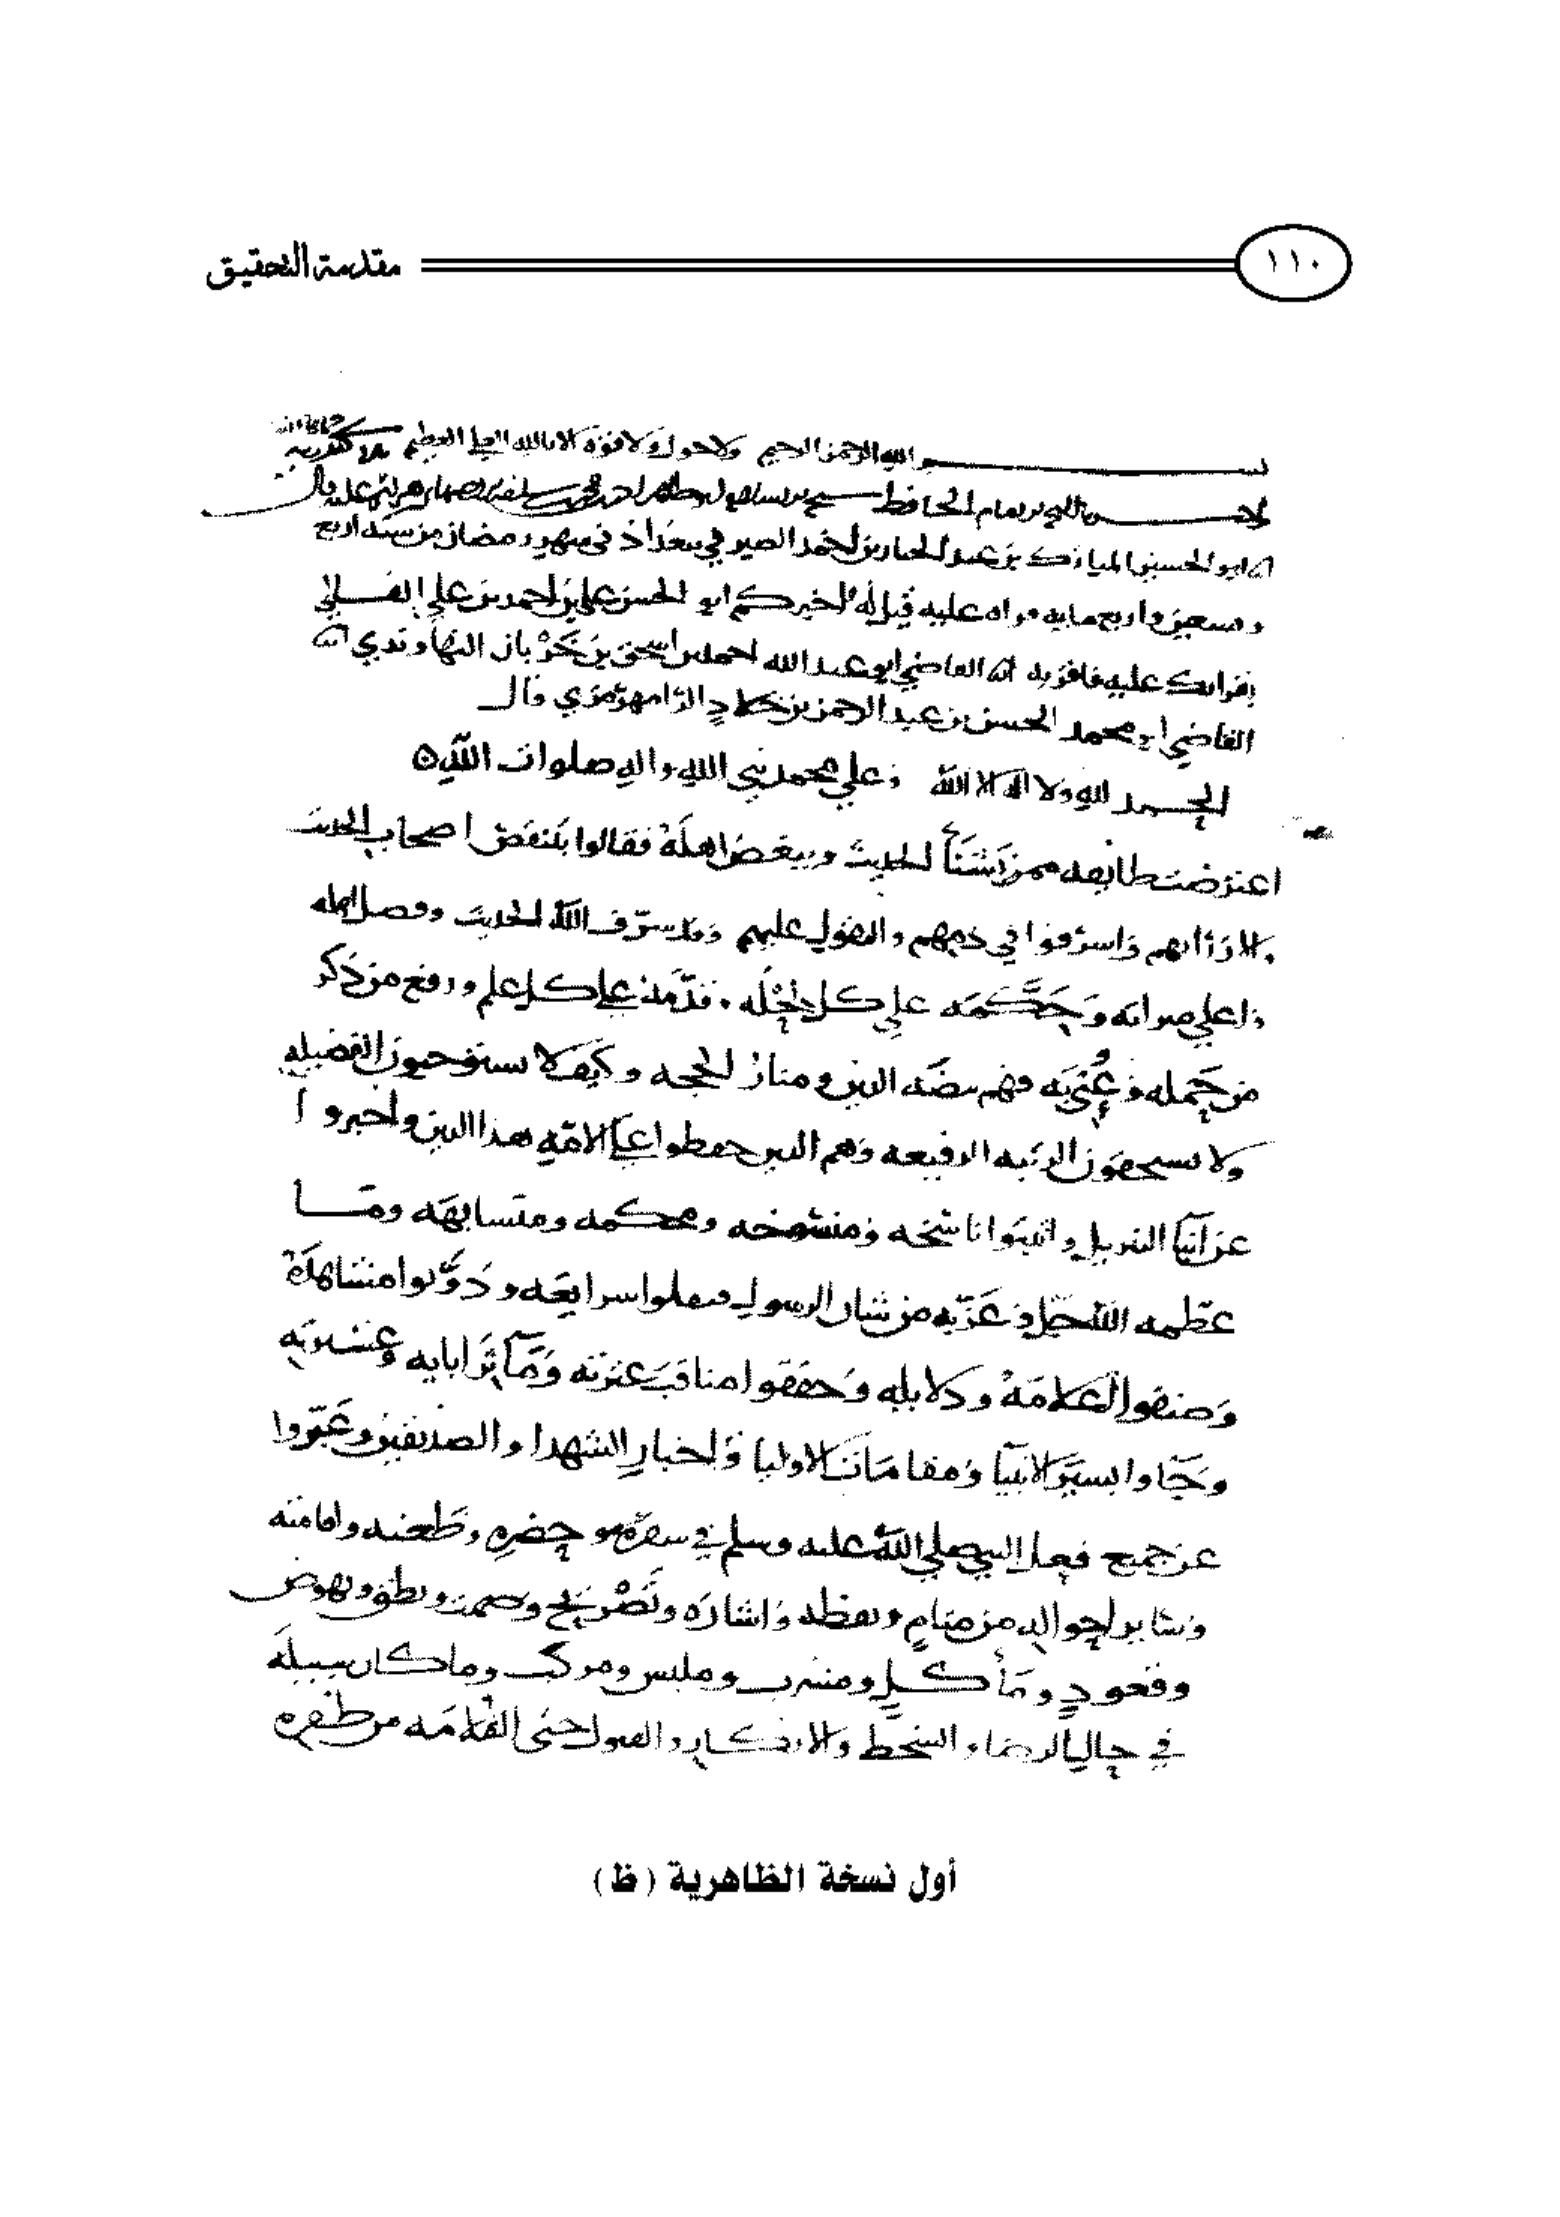 ١١٠
مقدمة التحقيق
بسم الله الرحمن الرحيم ولا حول ولا قوة الا بالله العلي العظيم
الحافظ
انا ابو الحسين المبارك بن عبد الجبار بن احمد الصيرفي ببغداد في شهر رمضان من سنة اربع
وتسعين واربع مايه قراه عليه قيل له اخبركم ابو الحسن علي بن احمد بن علي الفالي
بقراتك عليه فاقر به انا القاضي ابو عبد الله احمد بن اسحق بن خربان النهاوندي انا
القاضي ابو محمد الحسن بن عبد الرحمن بن خلاد الرامهرمزي قال
الحمد لله ولا اله الا الله وعلي محمد نبي الله واله صلوات الله
اعترضت طايفه ممن يشنأ الحديث ويبغض اهله فقالوا بتنقص اصحاب الحديث
والازراء بهم واسرفوا في ذمهم والتقول عليهم وقد شرف الله الحديث وفضل اهله
واعلي منزلته وحكمه علي كل نحله وقدمه علي كل علم ورفع من ذكر
من حمله وعني به فهم بيضه الدين ومنار الحجه وكيف لا يستوجبون الفضيله
ولا يستحقون الرتبه الرفيعه وهم الذين حفظوا علي الامه هذا الدين واخبروا
عن انبا التنزيل واثبتوا ناسخه ومنسوخه ومحكمه ومتشابهه وما
عظمه الله جل وعز به من شان الرسول فنقلوا شرايعه ودونوا مشاهده
وصنفوا اعلامه ودلايله وحققوا مناقب عترته ومآثر ابايه وعشيرته
وجاوا بسير الانبيا ومقامات الاوليا واخبار الشهدا والصديقين وعبروا
عن جميع فعل النبي صلي الله عليه وسلم في سفره وحضره وظعنه واقامته
وساير احواله من منام ويقظه واشاره وتصريح وصمت ونطق ونهوض
وقعود ومأكل ومشرب وملبس ومركب وما كان سبيله
في حال الرضا والسخط والانكار والقبول حتى القلامه من ظفره
أول نسخة الظاهرية (ظ)